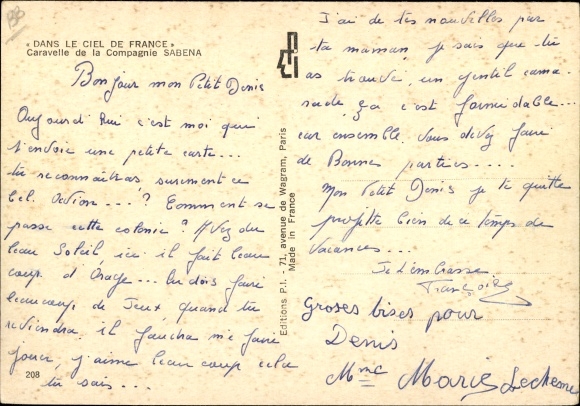 « DANS LE CIEL DE FRANCE »
Caravelle de la Compagnie SABENA
Bonjour mon Petit Denis
Aujourd hui c'est moi qui
t'envoie une petite carte...
tu reconnaitras surement ce
bel Avion...? Comment se
passe cette colonie? Avez du
beau Soleil, ici il fait beau
coup d Orage... tu dois faire
beaucoup de Jeux, quand tu
reviendra il faudra me faire
jouer, j'aime beau coup cela
tu sais...
208
Editions P.I. - 71, avenue de Wagram, Paris
Made in France
J'ai de tes nouvelles par
ta maman, je sais que tu
as trouvé un gentil cama-
rade ça c'est formidable...
car ensemble vous devez faire
de Bonnes parties....
Mon Petit Denis je te quitte
profite bien de ce temps de
vacances...
Je t'embrasse
Françoise
Groses bises pour
Denis
Mme Marie